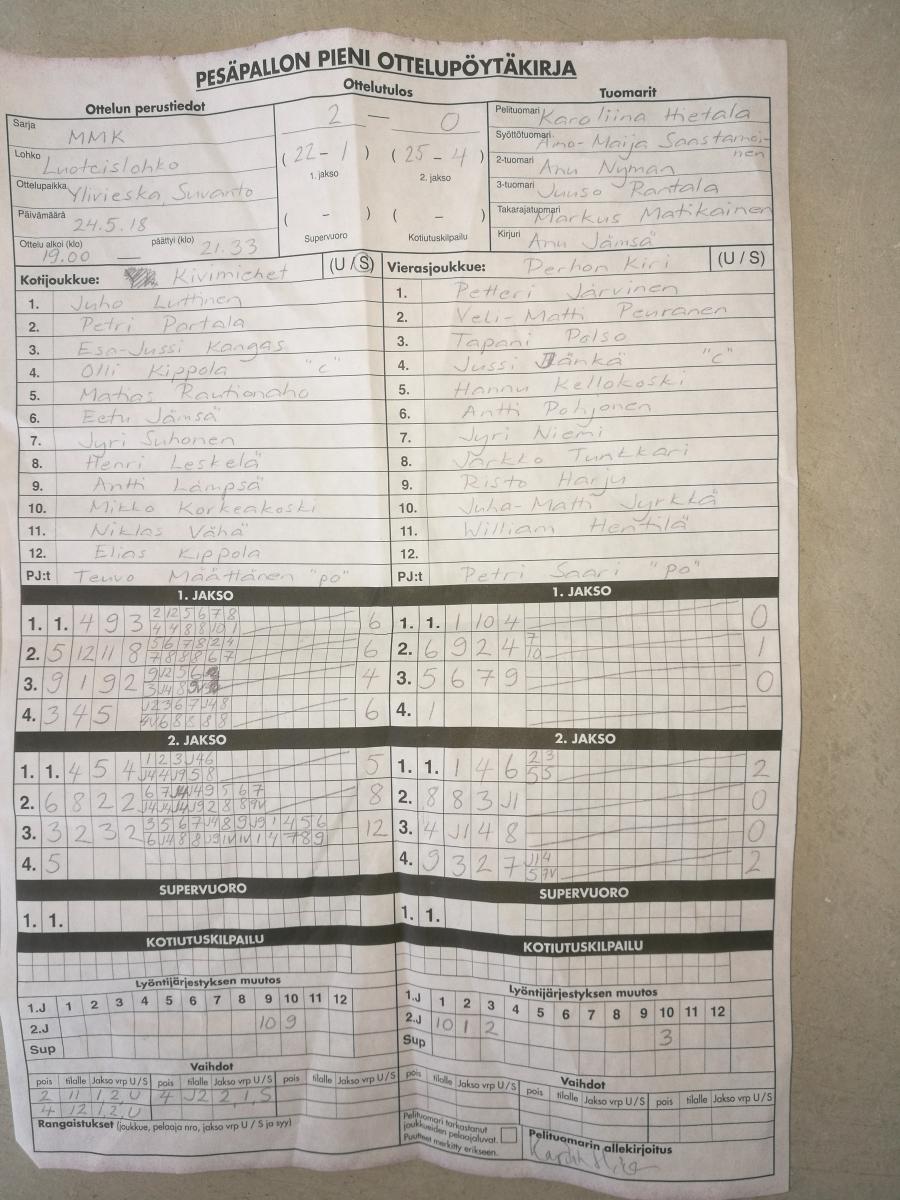 PESÄPALLON PIENI OTTELUPÖYTÄKIRJA
Ottelun perustiedot
Sarja MMK
Lohko Luoteislohko
Ottelupaikka Ylivieska Suvanto
Päivämäärä 24.5.18
Ottelu alkoi (klo) päättyi (klo)
19.00 — 21.33
Ottelutulos
2 — 0
(22 - 1) (25 - 4)
1. jakso 2. jakso
( - ) ( - )
Supervuoro Kotiutuskilpailu
Tuomarit
Pelituomari Karoliina Hietala
Syöttötuomari Aino-Maija Saastamoi-
nen
2-tuomari Anu Nyman
3-tuomari Juuso Rantala
Takarajatuomari Markus Matikainen
Kirjuri Anu Jämsä
Kotijoukkue: Kivimiehet (U / S)
1. Juho Luttinen
2. Petri Partala
3. Esa-Jussi Kangas
4. Olli Kippola "c"
5. Matias Rautionaho
6. Eetu Jämsä
7. Jyri Suhonen
8. Henri Leskelä
9. Antti Lampsä
10. Mikko Korkeakoski
11. Niklas Vähä
12. Elias Kippola
PJ:t Teuvo Määttänen "po"
Vierasjoukkue: Perhon Kiri (U / S)
1. Petteri Järvinen
2. Veli-Matti Peuranen
3. Tapani Palso
4. Jussi Jänkä "c"
5. Hannu Kellokoski
6. Antti Pohjonen
7. Jyri Niemi
8. Jarkko Tunkkari
9. Risto Harju
10. Juha-Matti Jyrkkä
11. William Hentilä
12.
PJ:t Petri Saari "po"
1. JAKSO
1. 1. 4 9 3 6
2. 5 12 11 8 6
3. 9 1 9 2 4
4. 3 4 5 6
1. JAKSO
1. 1. 1 10 4 0
2. 6 9 2 4 7 1
10
3. 5 6 7 9 0
4. 1
2. JAKSO
1. 1. 4 5 4 5
2. 6 8 2 2 8
3. 3 2 3 2 12
4. 5
2. JAKSO
1. 1. 1 4 6 2 3 2
5 5
2. 8 8 3 J1 0
3. 4 J1 4 8 0
4. 9 3 2 7 2
SUPERVUORO
1. 1.
SUPERVUORO
1. 1.
KOTIUTUSKILPAILU
KOTIUTUSKILPAILU
Lyöntijärjestyksen muutos
1.J 1 2 3 4 5 6 7 8 9 10 11 12
2.J 10 9
Sup
Lyöntijärjestyksen muutos
1.J 1 2 3 4 5 6 7 8 9 10 11 12
2.J 10 1 2 3
Sup
Vaihdot
pois tilalle Jakso vrp U/S pois tilalle Jakso vrp U/S pois tilalle Jakso vrp U/S
2 11 1,2,U 4 J2 2,1,S
4 12 1,2,U
Rangaistukset (joukkue, pelaaja nro, jakso vrp U / S ja syy)
Vaihdot
pois tilalle Jakso vrp U/S pois tilalle Jakso vrp U/S pois tilalle Jakso vrp U/S
Pelituomari tarkastanut
joukkueiden pelaajaluvat.
Puutteet merkitty erikseen.
Pelituomarin allekirjoitus